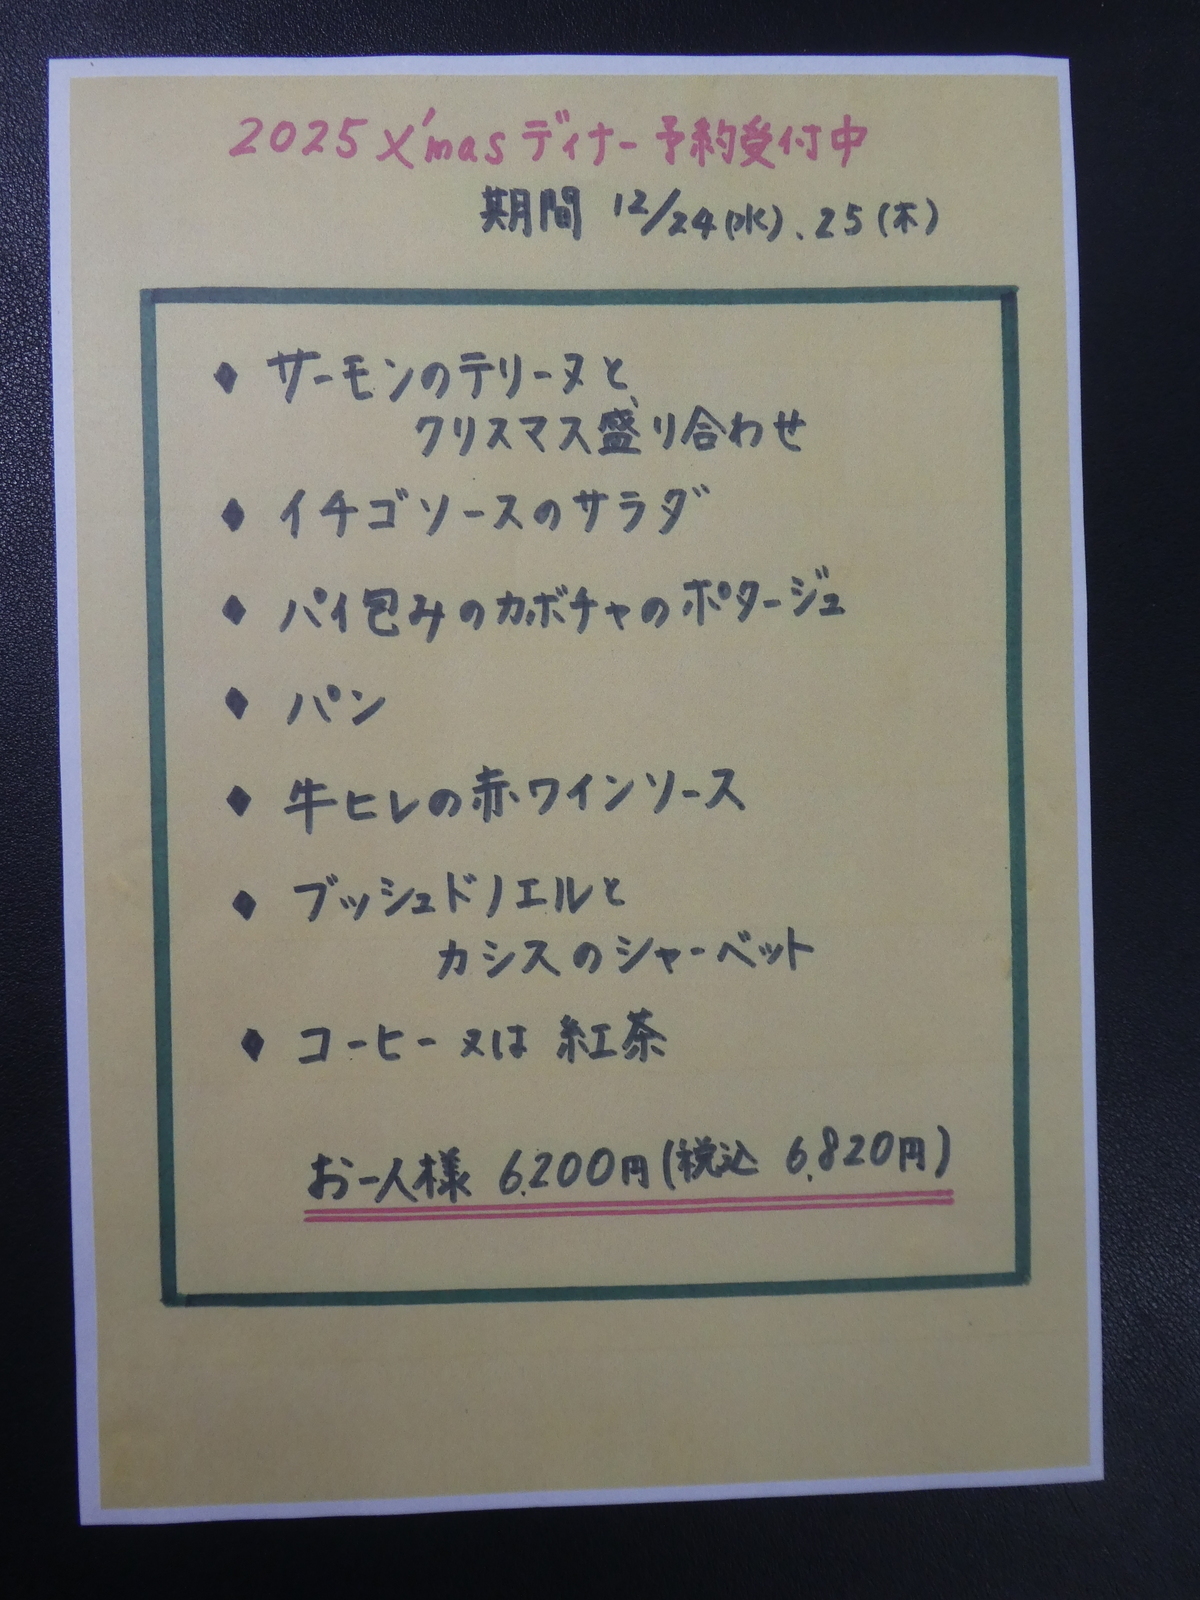 2025 X'mas ディナー予約受付中
期間 12/24(水)、25(木)
♦ サーモンのテリーヌと、
クリスマス盛り合わせ
♦ イチゴソースのサラダ
♦ パイ包みのカボチャのポタージュ
♦ パン
♦ 牛ヒレの赤ワインソース
♦ ブッシュドノエルと
カシスのシャーベット
♦ コーヒー又は 紅茶
お一人様 6,200円(税込 6,820円)